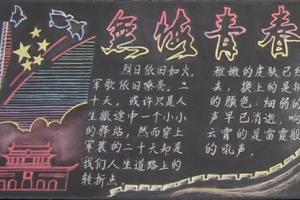 無悔青春
烈日依旧如火,
军歌依旧嘹亮。二
十天,或许只是人
生旅途中一个小小
的驿站,然而穿上
军装的二十天却是
我们人生道路上的
转折点。
稚嫩的皮肤已经
去,换上的是
的颜色;细弱的
声早已消逝,响
云霄的是雷霆般
的吼声。